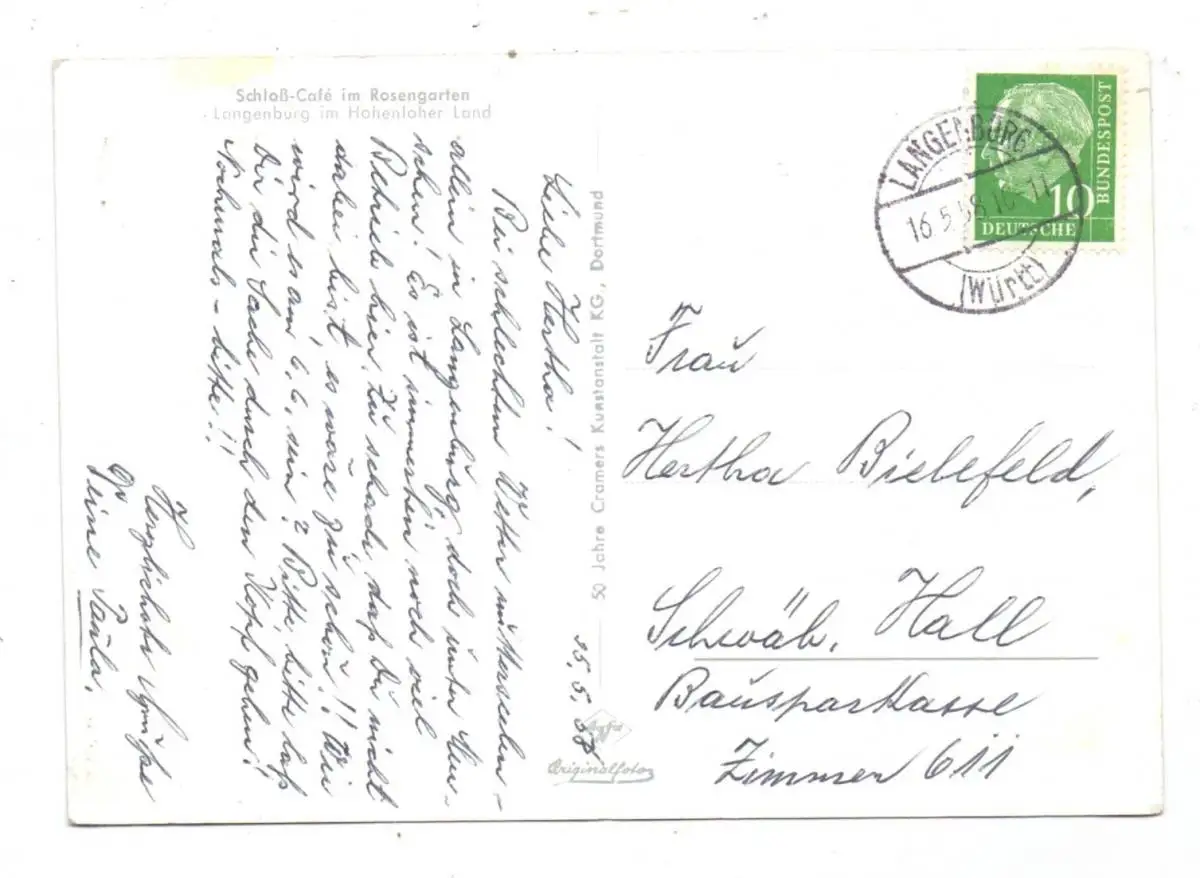 Schloß-Café im Rosengarten
Langenburg im Hohenloher Land
15.5.58
Liebe Hertha!
Bei schlechtem Wetter
allein in Langenburg, doch unter Men-
schen! Es ist immerhin noch viel
Betrieb hier. Zu schade, daß Du nicht
dabei bist, es wäre zu schön!! Wie
wird es am 6.6. sein? Bitte bitte laß
Dir die Sache durch den Kopf gehen!
Nochmals - bitte!!
Herzlichste Grüße
Deine Paula.
50 Jahre Cramers Kunstanstalt KG., Dortmund
Agfa
Originalfoto
LANGENBURG
16.5.58
(Württ)
10
BUNDESPOST
DEUTSCHE
Frau
Hertha Bielefeld,
Schwäb. Hall
Bausparkasse
Zimmer 611